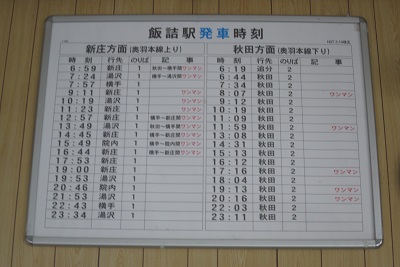 飯詰駅発車時刻
新庄方面(奥羽本線上り)
時刻 行先 のりば 記事
6:59 新庄 1 秋田〜横手間ワンマン
7:24 湯沢 1 ワンマン
7:57 横手 1
9:11 新庄 1 ワンマン
10:19 湯沢 1 ワンマン
11:23 新庄 1 ワンマン
12:57 新庄 1 横手〜新庄間ワンマン
13:49 湯沢 1 秋田〜横手間ワンマン
14:45 新庄 1 横手〜新庄間ワンマン
15:49 院内 1 横手〜院内間ワンマン
16:44 新庄 1 横手〜新庄間ワンマン
17:53 新庄 1
19:00 新庄 1
19:53 湯沢 1
20:46 院内 1
21:53 湯沢 1
22:43 横手 1
23:34 湯沢 1
秋田方面(奥羽本線下り)
時刻 行先 のりば 記事
6:19 追分 2
6:44 秋田 2
7:18 秋田 2
8:07 秋田 2 ワンマン
8:52 秋田 2
10:18 秋田 2
12:16 秋田 2
13:08 秋田 2
14:31 秋田 2
15:13 秋田 2
16:12 秋田 2
17:16 秋田 2 ワンマン
18:04 秋田 2 ワンマン
19:13 秋田 2
20:16 秋田 2 ワンマン
22:12 秋田 2
23:11 秋田 2